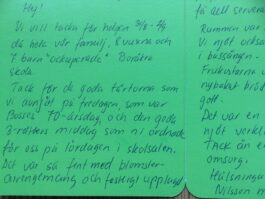 Hej!
Vi vill tacka för helgen 31/8 - 2/9
då hela vår familj, 8 vuxna och
7 barn "ockuperade" Borätra
skola.
Tack för de goda tårtorna som
vi avnjöt på fredagen, som var
Bosses 70-årsdag, och den goda
3-rätters middag som ni ordnade
för oss på lördagen i skolsalen.
Det var så fint med blomster-
arrangemang och festligt upplagd
få aell servera
Rummen var
Vi njöt också
i bassängen.
Frukostarna v
nybakat bröd
gott.
Det var en
njöt verkl
TACK än en
omsorg.
Hälsninga
Nilsson m